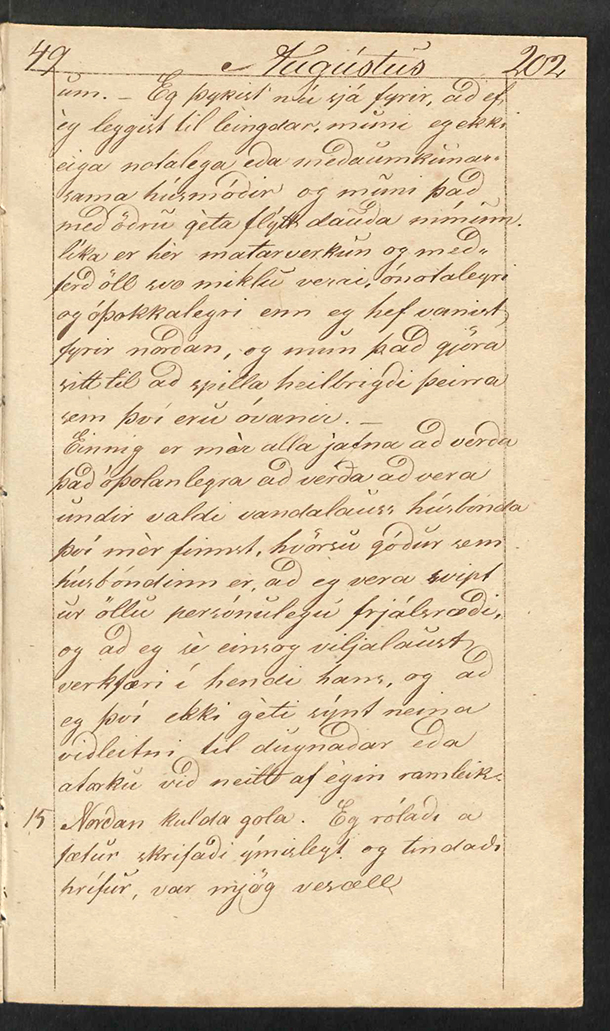 49 Augústus 202
um. – Eg þykist nú sjá fyrir, ad ef
èg leggist til leingdar, muni eg ekki
eiga notalega eda medaumkunar-
sama húsmódir og muni það
med ödru géta flýtt dauda mínum.
líka er hèr matarverkun og med-
ferd öll svo miklu verri, ónotalegri
og óþokkalegri enn eg hef vanist
fyrir nordan, og mun það gjöra
sitt til ad spilla heilbrigdi þeirra
sem því eru óvanir. –
Einnig er mèr alla jafna ad verda
það óþolanlegra ad verda ad vera
undir valdi vandalauss húsbónda
því mèr finnst, hvörsu gódur sem
húsbóndinn er, ad eg vera svipt
úr öllu persónulegu frjálsrædi,
og ad eg sè einsog viljalaust
verkfæri í hendi hans, og ad
eg því ekki gèti sýnt neina
vidleitni til dugnadar eda
atorku vid neitt af eigin ramleik.
15 Nordan kulda gola. Eg róladi a
fætur skrifadi ýmislegt og tindadi
hrífur, var mjög vesæll